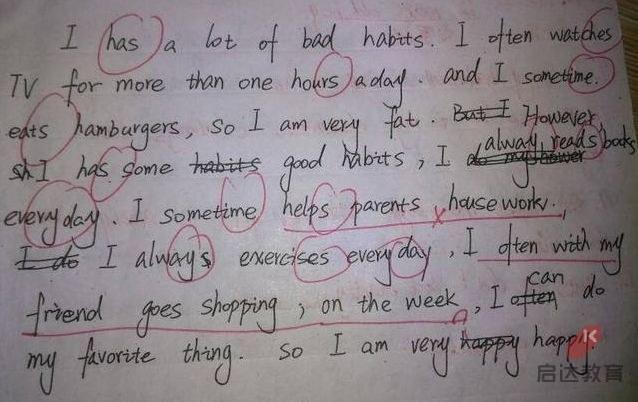 I has a lot of bad habits. I often watches
TV for more than one hours a day. and I sometime.
eats hamburgers, so I am very fat. But I However,
I has some habits good habits, I alway reads books
every day. I sometime helps parents housework.,
I do I always exercises every day, I often with my
friend goes shopping, on the week, I often can do
my favorite thing. so I am very happy happy.
K
启达教育